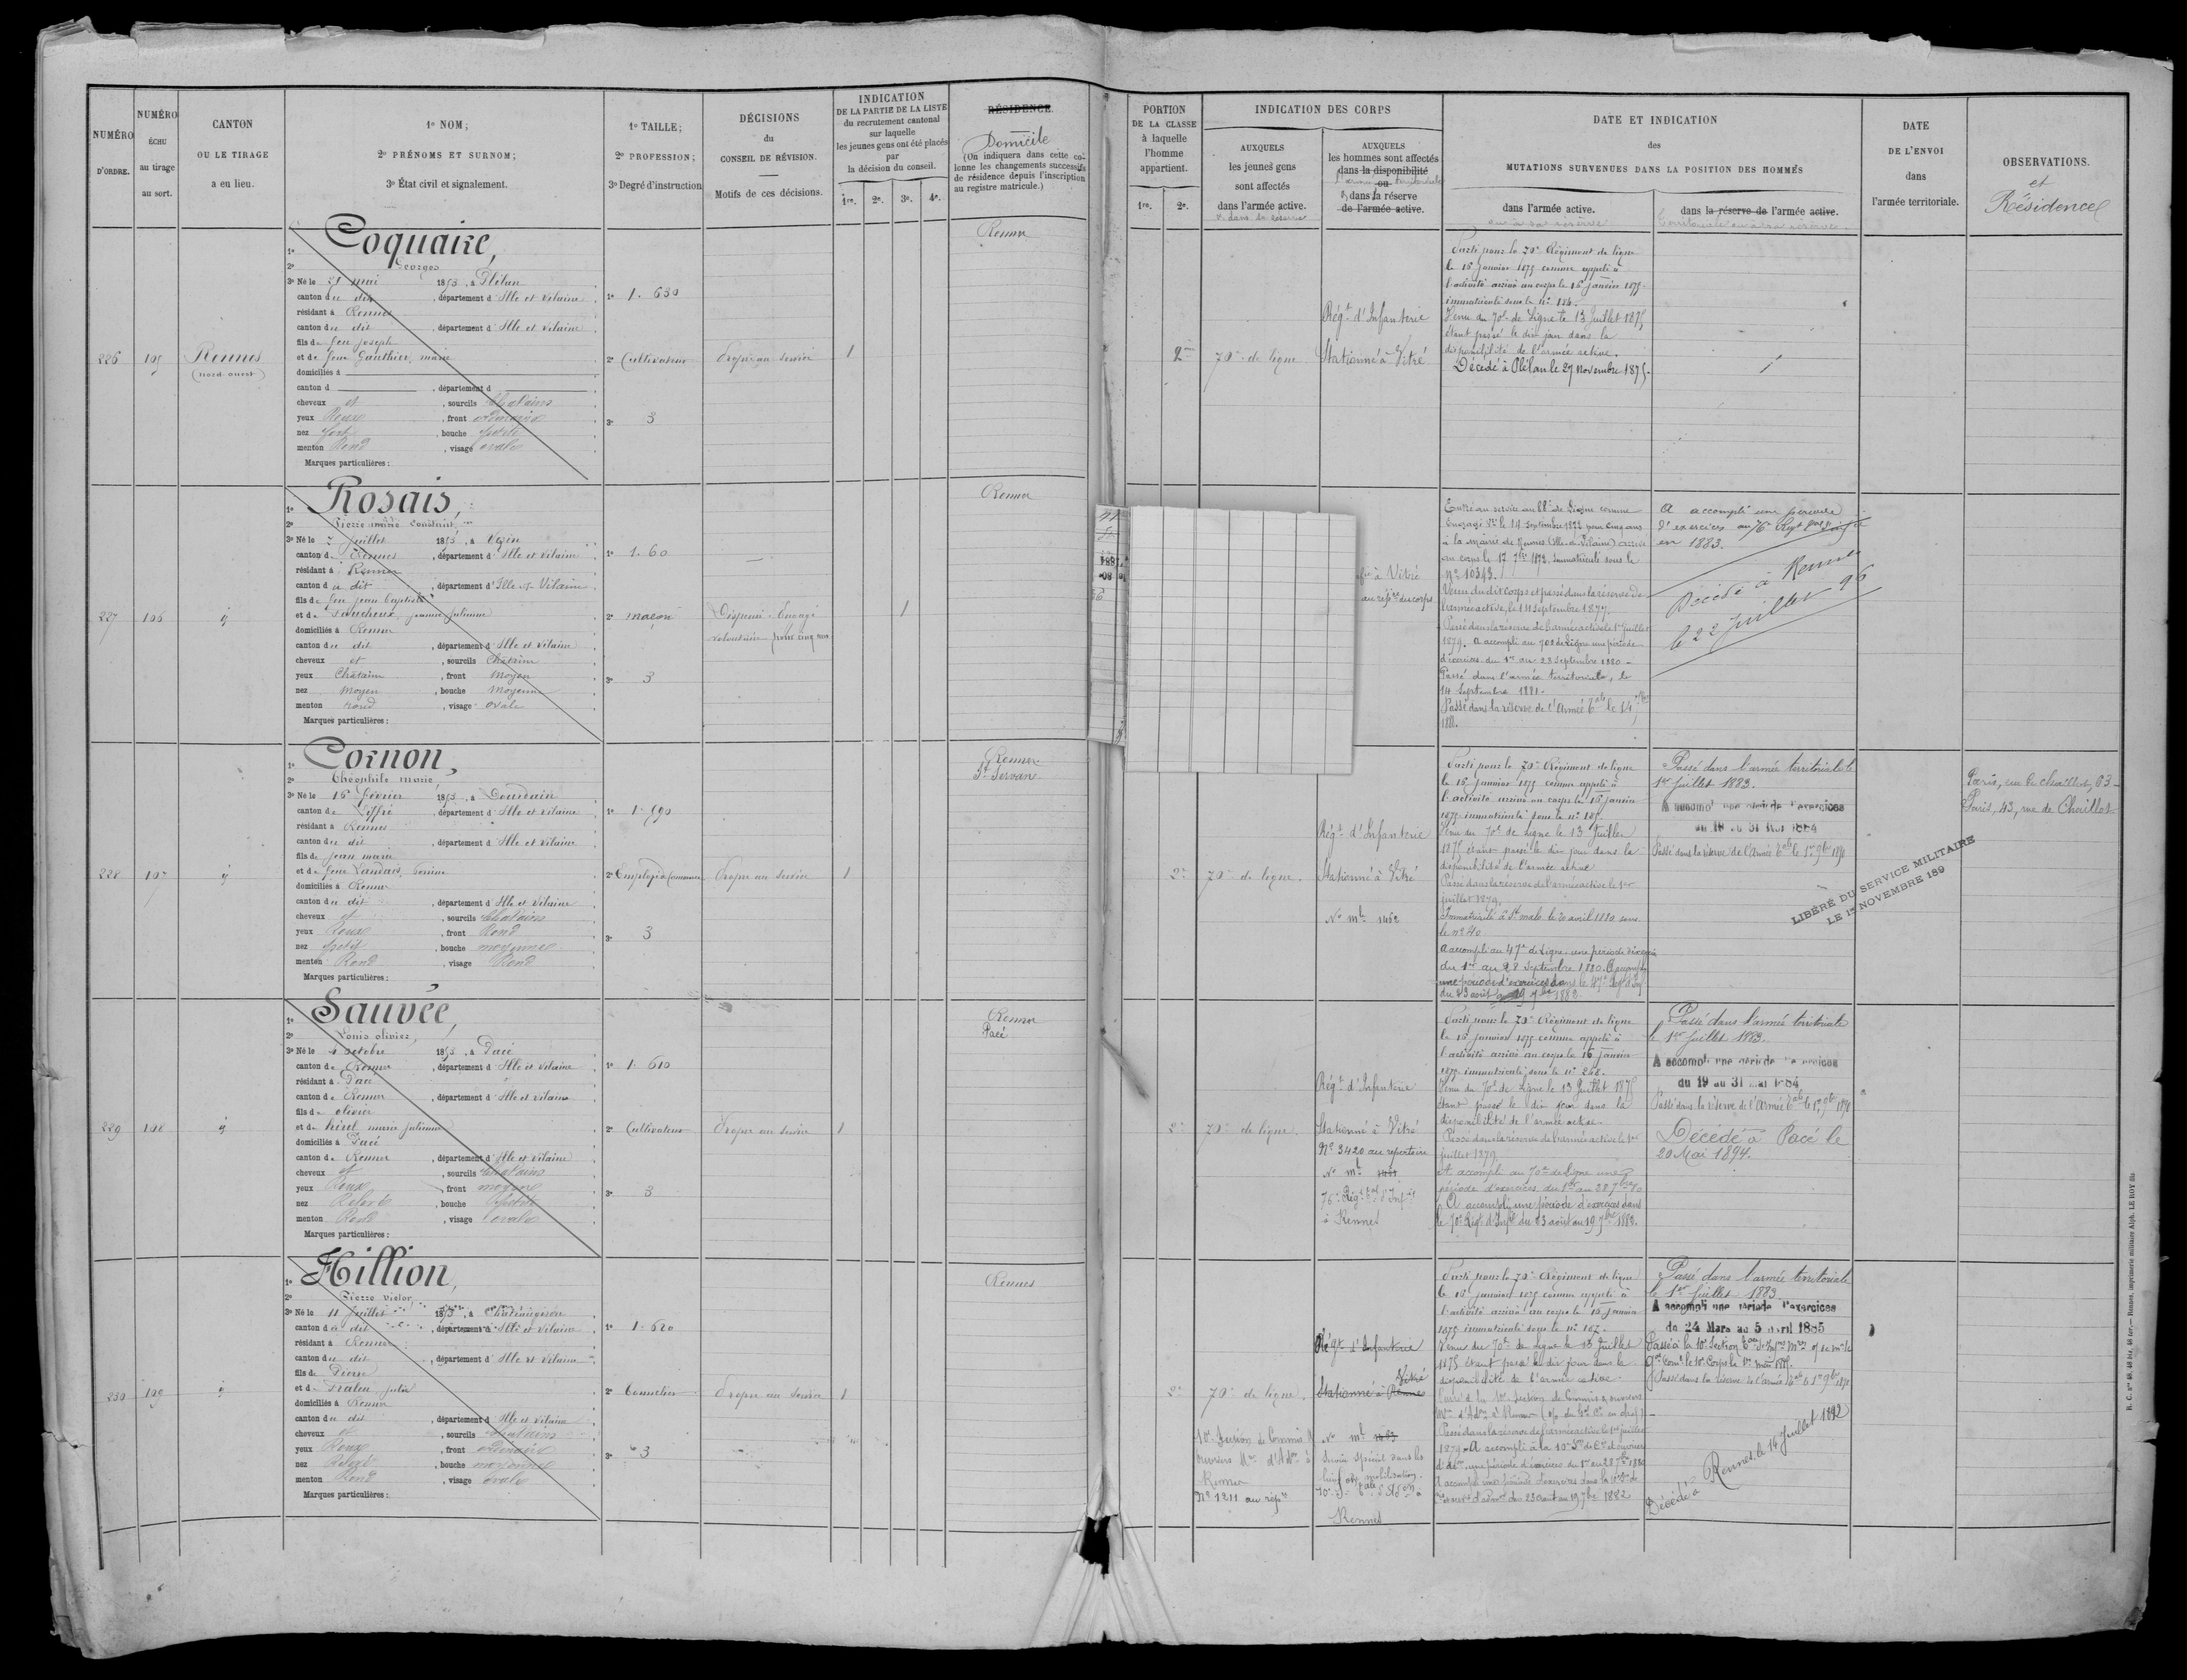 NUMÉRO
D'ORDRE.
NUMÉRO
ÉCHU
au tirage
au sort.
CANTON
OU LE TIRAGE
a eu lieu.
1º NOM;
2º PRÉNOMS ET SURNOM;
3º État civil et signalement.
1º TAILLE;
2º PROFESSION;
3º Degré d'instruction
DÉCISIONS
du
CONSEIL DE RÉVISION.
Motifs de ces décisions.
INDICATION
DE LA PARTIE DE LA LISTE
du recrutement cantonal
sur laquelle
les jeunes gens ont été placés
par
la décision du conseil.
1re. 2e. 3e. 4e.
RÉSIDENCE
Domicile
(On indiquera dans cette co-
lonne les changements successifs
de résidence depuis l'inscription
au registre matricule.)
PORTION
DE LA CLASSE
à laquelle
l'homme
appartient.
1re. 2e.
INDICATION DES CORPS
AUXQUELS
les jeunes gens
sont affectés
dans l'armée active.
& dans la réserve
AUXQUELS
les hommes sont affectés
dans la disponibilité
ou
& dans la réserve
de l'armée active.
DATE ET INDICATION
des
MUTATIONS SURVENUES DANS LA POSITION DES HOMMES
dans l'armée active.
ou de sa réserve
dans la réserve de l'armée active.
DATE
DE L'ENVOI
dans
l'armée territoriale.
OBSERVATIONS.
et
Résidence
226
105
Rennes
(nord-ouest)
Coquaire,
1º
2º Georges
3º Né le 21 mai 1853, à Plélan
canton du dit, département d'Ille et Vilaine
résidant à Rennes
canton du dit, département d'Ille et Vilaine
fils de feu Joseph
et de feue Gauthier, marie
domiciliés à
canton d , département d
cheveux et , sourcils Châtains
yeux Roux , front ordinaire
nez fort , bouche petite
menton Rond , visage ovale
Marques particulières :
1º 1. 630
2º Cultivateur
3º 3
Propre au service
1
Rennes
2e
70e de ligne
Régt d'Infanterie
Stationné à Vitré
Parti pour le 70e Régiment de ligne
le 16 janvier 1875 comme appelé à
l'activité arrivé au corps le 16 janvier 1875.
immatriculé sous le nº 184.
Venu du 70e de Ligne le 13 Juillet 1875
étant passé le dix jour dans la
disponibilité de l'armée active.
Décédé à Plélan le 27 Novembre 1875.
227
106
Rosais,
1º
2º Pierre aimé Constant
3º Né le 2 juillet 1853, à Vezin
canton de Rennes, département d'Ille et Vilaine
résidant à Rennes
canton du dit, département d'Ille et Vilaine
fils de feu jean baptiste
et de Faucheux, jeanne julienne
domiciliés à Rennes
canton du dit, département d'Ille et Vilaine
cheveux et , sourcils Châtains
yeux Châtains , front Moyen
nez Moyen , bouche Moyenne
menton rond , visage ovale
Marques particulières :
1º 1. 60
2º maçon
3º 3
Dispensé. Engagé
volontaire pour cinq ans
1
Rennes
à Vitré
Entré au service au de Ligne comme
Engagé Vre le 14 Septembre 1872 pour cinq ans
à la mairie de Rennes (Ille-et-Vilaine) arrivé
au corps le 17 7bre 1872. Immatriculé sous le
Nº 10343.
Venu du dit corps et passé dans la réserve de
l'armée active, le 14 septembre 1877.
Passé dans la réserve de l'armée active le 1er Juillet
1879. A accompli au 70e de Ligne une période
d'exercices du 1er au 28 Septembre 1880 -
Passé dans l'armée territoriale, le
14 Septembre 1881.
Passé dans la réserve de l'Armée
A accompli une période
d'exercices au 76e Régt
en 1883.
Décédé à Rennes
le 22 juillet 96
228
107
Cornon,
1º
2º Théophile Marie
3º Né le 16 février 1853, à Dourdain
canton de Liffré, département d'Ille et Vilaine
résidant à Rennes
canton du dit, département d'Ille et Vilaine
fils de jean marie
et de feue Landais,
domiciliés à Rennes
canton du dit, département d'Ille et Vilaine
cheveux et , sourcils Châtains
yeux Roux , front Rond
nez petit , bouche moyenne
menton Rond , visage Rond
Marques particulières :
1º 1. 590
2º Employé de Commerce
3º 3
Propre au service
1
Rennes
St Servan
2e
70e de ligne.
Régt d'Infanterie
Stationné à Vitré
Nº mle 1452
Parti pour le 70e Régiment de ligne
le 16 janvier 1875 comme appelé à
l'activité arrivé au corps le 16 janvier
1875 immatriculé sous le nº 185.
Venu du 70e de Ligne le 13 Juillet
1875 étant passé le dix jour dans la
disponibilité de l'armée active
Passé dans la réserve de l'armée active le 1er
juillet 1879.
Immatriculé à St malo le 20 avril 1880 sous
le nº 40
A accompli au 47e de Ligne une période d'exercices
du 1er au 28 Septembre 1880. A accompli
une période d'exercices dans le 47e Régt d'Inf
du 23 août au 19 7bre 1882
Passé dans l'armée territoriale le
1er juillet 1883.
A accompli une période d'exercices
du 18 au 31 Mai 1884
Passé dans la réserve de l'Armée tale le 1er 9bre 1890
LIBÉRÉ DU SERVICE MILITAIRE
LE 1er NOVEMBRE 189
Paris, rue de Chaillot, 63
Paris, 43, rue de Chaillot
229
108
Sauvée,
1º
2º Louis olivier,
3º Né le 4 octobre 1853, à Pacé
canton de Rennes, département d'Ille et Vilaine
résidant à Pacé
canton de Rennes, département d'Ille et Vilaine
fils de olivier
et de hirel marie julienne
domiciliés à Pacé
canton de Rennes, département d'Ille et Vilaine
cheveux et , sourcils Châtains
yeux Roux , front moyen
nez Relevé , bouche petite
menton Rond , visage ovale
Marques particulières :
1º 1. 610
2º Cultivateur
3º 3
Propre au service
1
Rennes
Pacé
2e
70e de ligne.
Régt d'Infanterie
Stationné à Vitré
Nº 3420 au répertoire
Nº mle
76e Régt tal d'Infie
à Rennes
Parti pour le 70e Régiment de ligne
le 16 janvier 1875 comme appelé à
l'activité arrivé au corps le 16 janvier
1875 immatriculé sous le nº 268.
Venu du 70e de Ligne le 13 Juillet 1875
étant passé le dix jour dans la
disponibilité de l'armée active.
Passé dans la réserve de l'armée active le 1er
juillet 1879
A accompli au 70e de Ligne une
période d'exercices du 1er au 28 7bre 80
A accompli une période d'exercices dans
le 70e Régt d'Infie du 23 août au 19 7bre 1882.
Passé dans l'armée territoriale
le 1er Juillet 1883.
A accompli une période d'exercices
du 19 au 31 Mai 1884
Passé dans la réserve de l'Armée tale le 1er 9bre 1890
Décédé à Pacé le
20 Mai 1894.
230
109
Hillion,
1º
2º Pierre victor,
3º Né le 11 Juillet 1853, à Châteaugiron
canton du dit, département d'Ille et Vilaine
résidant à Rennes
canton du dit, département d'Ille et Vilaine
fils de Pierre
et de julie
domiciliés à Rennes
canton du dit, département d'Ille et Vilaine
cheveux et , sourcils Châtains
yeux Roux , front ordinaire
nez Relevé , bouche moyenne
menton Rond , visage ovale
Marques particulières :
1º 1. 620
2º Tonnelier
3º 3
Propre au service
1
Rennes
2e
70e de ligne.
10e Section de Commis &
ouvriers Mres d'Adon à
Rennes
Nº 1211 au répre
Régt d'Infanterie
Vitré
Stationné à Rennes
Nº mle 1483
Service spécial dans les
mobilisation.
Rennes
Parti pour le 70e Régiment de ligne
le 16 janvier 1875 comme appelé à
l'activité arrivé au corps le 16 janvier
1875 immatriculé sous le nº 187.
Venu du 70e de Ligne le 13 Juillet
1875 étant passé le dix jour dans la
disponibilité de l'armée active.
Passé à la 10e Section de Commis & ouvriers
Mres d'Adon à Rennes
Passé dans la réserve de l'armée active le 1er juillet
1879. A accompli à la 10e
une période d'exercices du 1er au 28 7bre 1880
A accompli une période d'exercices dans la 10e
du 23 août au 19 7bre 1882
Passé dans l'armée territoriale
le 1er Juillet 1883
A accompli une période d'exercices
du 24 Mars au 5 avril 1885
Passé à la 10e Section
le 10e Corps le 1er mai 1885.
Passé dans la réserve de l'Armée tale le 1er 9bre 1890
Décédé à Rennes, le 14 Juillet 1892
R. C. nos 46, 48 bis, 48 ter. — Rennes, imprimerie militaire Alph. LE ROY fils